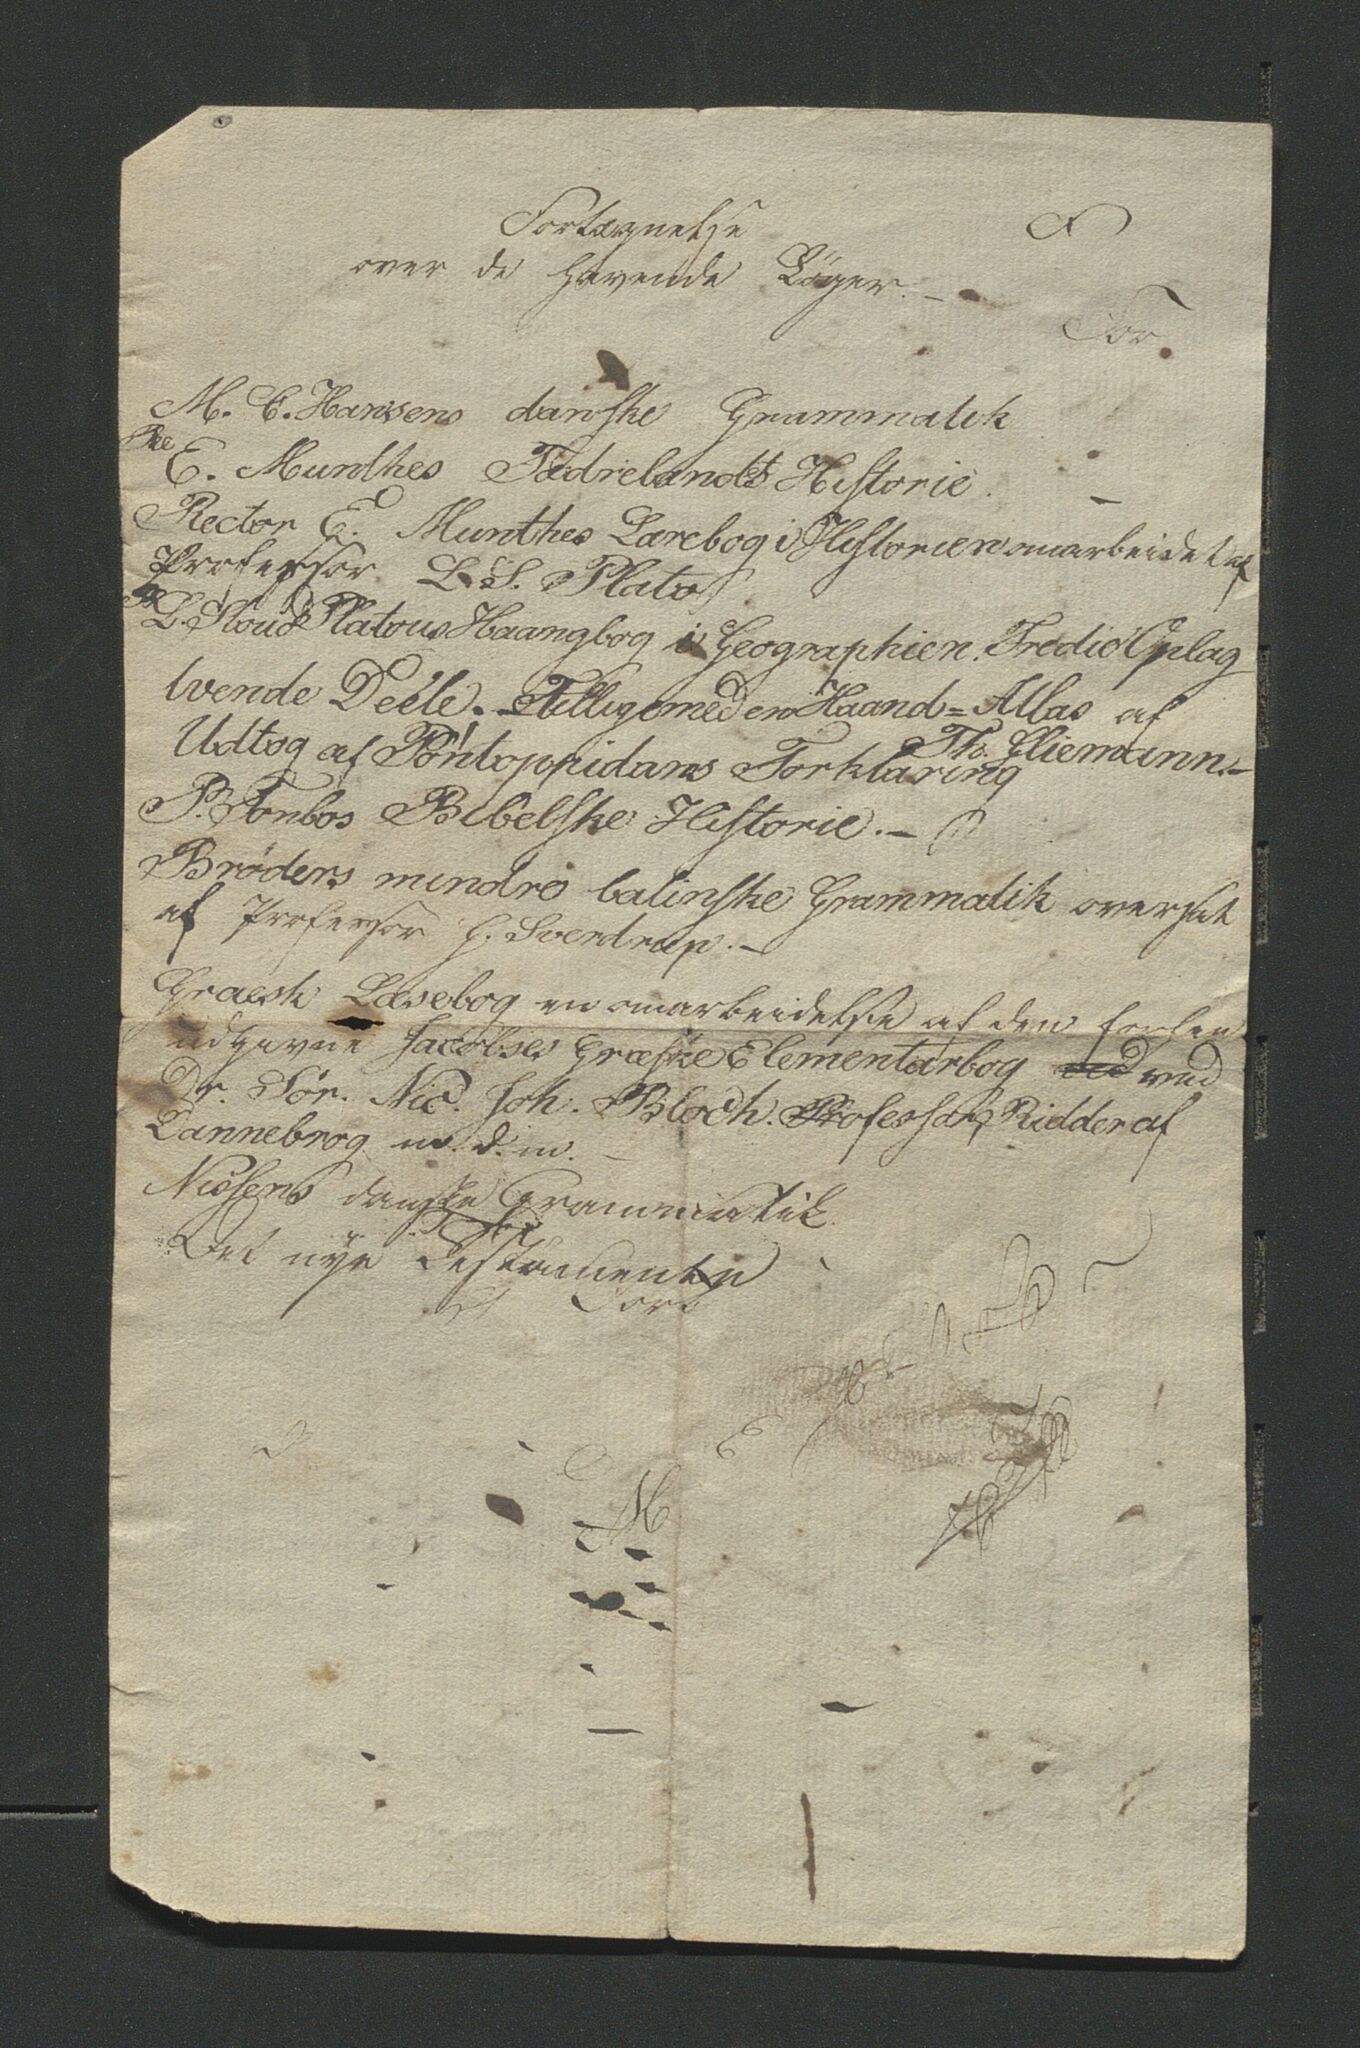 Fortegnelse
over de havende Bøger. –
For
M. C. Hansens danske Grammatik
E. Munthes Fædrelandets Historie.
Rector E. Munthes Lærebog i Historien omarbeidet af
Professor L. S. Plato
L. Stoud Platous Haangbog i Geographien. Tredie Oplag
tvende Deele. – Tilligemed en Haand = Atlas af
Th. Gliemann. –
Udtog af Pontoppidans Forklaring
P. Fonbos Bibelske Historie. –
Brøders mindre latinske Grammatik oversat
af Professor G. Sverdrup. –
Græsk Læsebog en omarbeidelse af den forhen
udgivne Jacobses Græske Elementarbog ved ved
Dr. Sør. Nic. Joh. Bloch. Professor, Ridder af
Dannebrog m. d. m. –
Nissens danske Grammatik.
Det nye Testamente
M